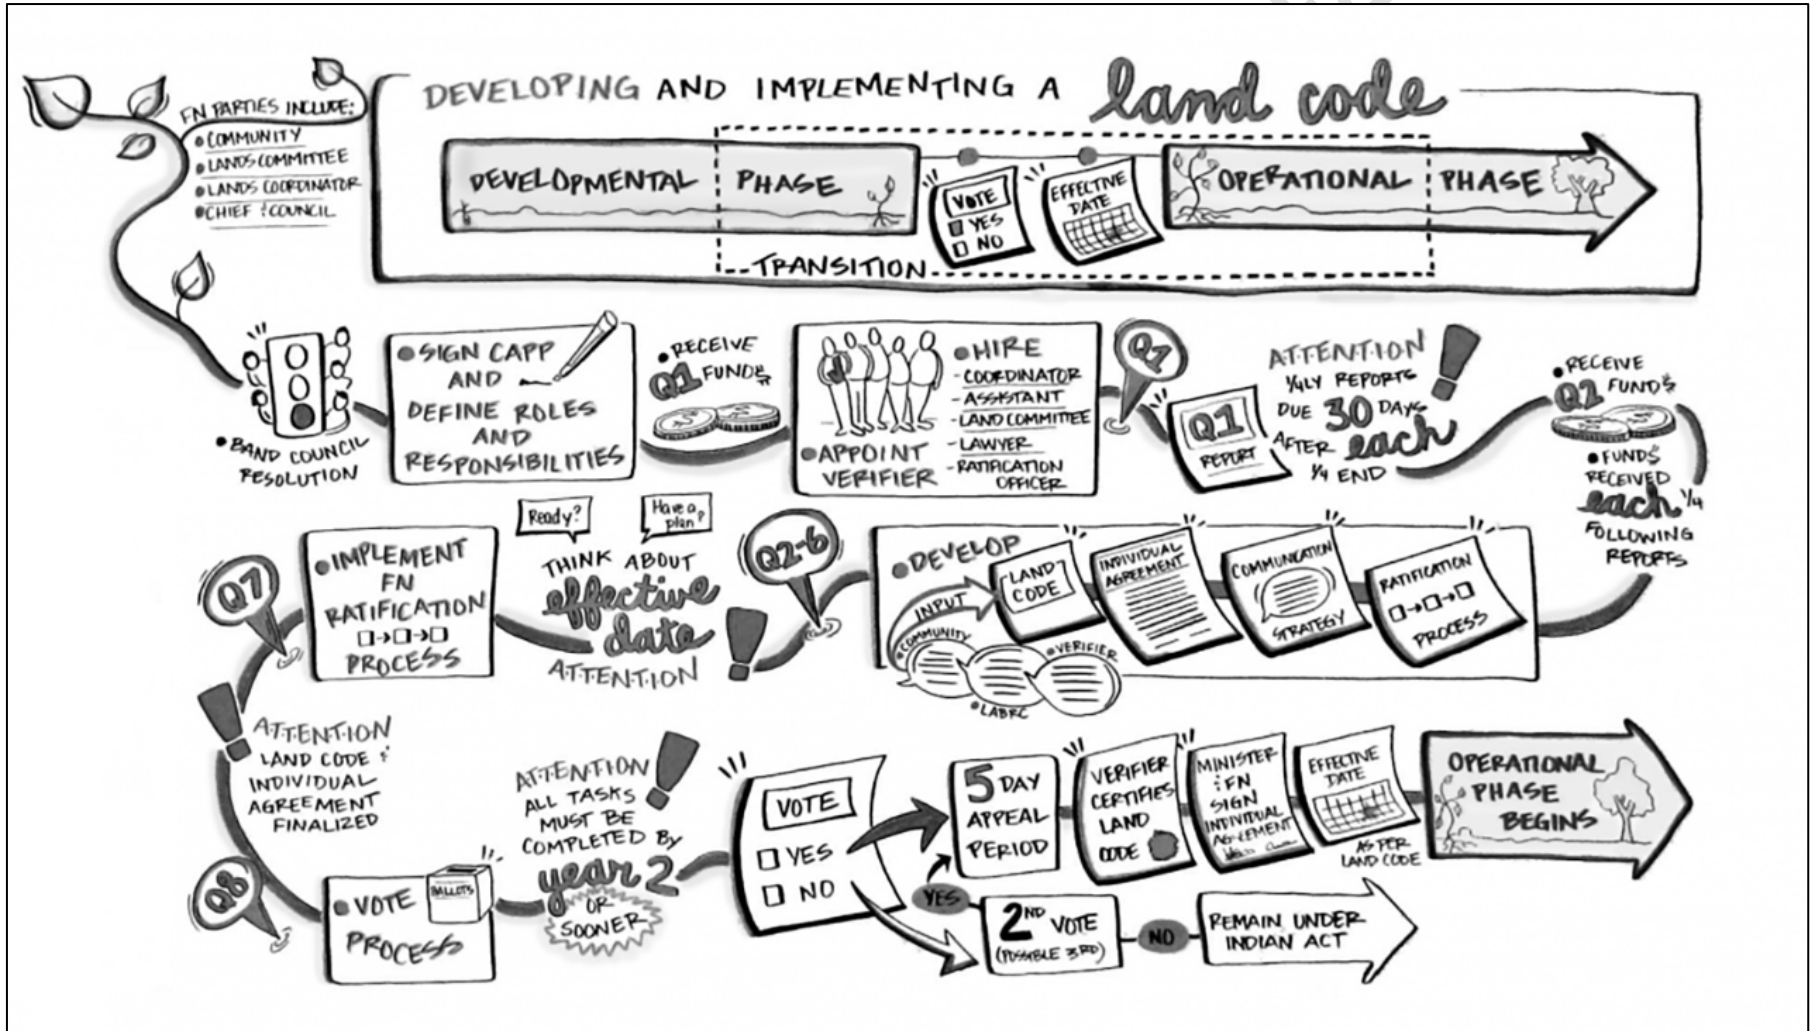 DEVELOPING AND IMPLEMENTING A land code
FN PARTIES INCLUDE:
• COMMUNITY
• LANDS COMMITTEE
• LANDS COORDINATOR
• CHIEF & COUNCIL
DEVELOPMENTAL PHASE
VOTE
YES
NO
EFFECTIVE
DATE
OPERATIONAL PHASE
TRANSITION
• BAND COUNCIL
RESOLUTION
• SIGN CAPP
AND
DEFINE ROLES
AND
RESPONSIBILITIES
• RECEIVE
Q1 FUNDS
• APPOINT
VERIFIER
• HIRE
- COORDINATOR
- ASSISTANT
- LAND COMMITTEE
- LAWYER
- RATIFICATION
OFFICER
Q1
Q1
REPORT
ATTENTION
1/4LY REPORTS
DUE 30 DAYS
AFTER each
1/4 END
• RECEIVE
Q2 FUNDS
• FUNDS
RECEIVED
each 1/4
FOLLOWING
REPORTS
• DEVELOP
INPUT
• COMMUNITY
• LABRC
• VERIFIER
LAND
CODE
INDIVIDUAL
AGREEMENT
COMMUNICATION
STRATEGY
RATIFICATION
PROCESS
Q2-6
Ready?
Have a
plan?
THINK ABOUT
effective
date
ATTENTION
• IMPLEMENT
FN
RATIFICATION
PROCESS
Q7
ATTENTION
LAND CODE &
INDIVIDUAL
AGREEMENT
FINALIZED
Q8
• VOTE
PROCESS
BALLOTS
ATTENTION
ALL TASKS
MUST BE
COMPLETED BY
year 2
OR
SOONER
VOTE
YES
NO
5 DAY
APPEAL
PERIOD
VERIFIER
CERTIFIES
LAND
CODE
MINISTER
& FN
SIGN
INDIVIDUAL
AGREEMENT
EFFECTIVE
DATE
AS PER
LAND CODE
OPERATIONAL
PHASE
BEGINS
YES
2ND VOTE
(POSSIBLE 3RD)
NO
REMAIN UNDER
INDIAN ACT